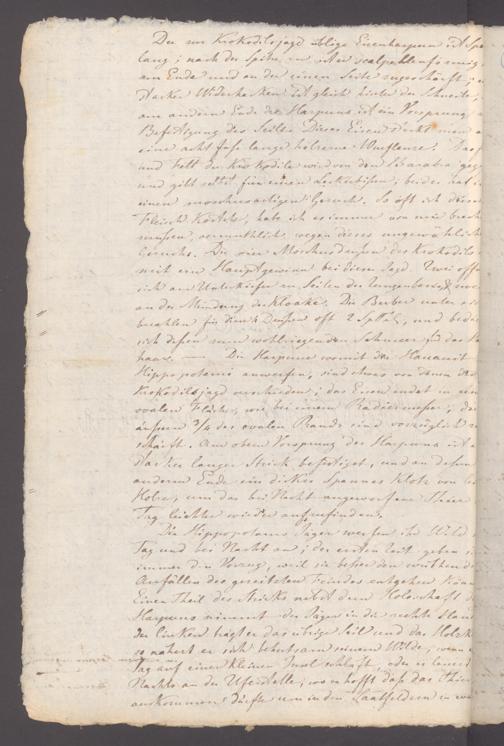 Der zur Krokodilsjagd übliche Eisenharpun ist Spa
lang; nach der Spitze zu ist er scalpellförmig
am Ende und an der einen Seite zugeschärft;
starker Widerhaken ist gleich hinter der Schneide,
am andern Ende des Harpuns ist ein Vorsprung
Befestigung des Seiles. Dieses Eisen steckt man
eine acht Fuss lange hölzerne Wurflanze. Das
und Fett der Krokodile wird von den Barabra geg
und gibt selbst für einen Leckerbissen; beides hat
einen moschusartigen Geruch. So oft ich dieses
Fleisch kostete, habe ich es immer von mir brech
müssen, vermuthlich wegen dieses ungewöhnlich
Geruchs. Die vier Moschusdrüsen des Krokodils
weit ein Hauptgewinn bei dieser Jagd. Zwei öff
sich am Unterkiefer zu Seiten der Zungenbasis,
an der Mündung der Kloake. Die Berber unter
bezahlen für diese 4 Drüsen oft 2 Sp Thlr, und bed
sich dessen zum wohlriegenden Schmeer für das
haar. — Die Harpune womit die Hauauit
Hippopotami anwerfen, sind etwas von denen der
Krokodilsjagd verschieden; das Eisen endet in eine
ovalen Fläche, wie bei einem Radiermesser, de
äussere ¾ des ovalen Rands sind vorzüglich
schärft. Am obern Vorsprung des Harpuns ist
starker langer Strick befestiget, und an dessen
anderem Ende ein dickes Spannes Klotz von le
Holze, um das bei Nacht angeworfene Thier
Tag leichter wieder aufzufinden.
Die Hippopotamus Jäger werfen ihr Wild
Tag und bei Nacht an; der ersten Zeit geben s
immer den Vorzug, weil sie besser den wüthende
Anfällen des gereitzten Feindes entgehen könn
Einen Theil des Stricks nebst dem Holzschaft d
Harpuns nimmt der Jäger in die rechte Hand
der linken trägt er das übrige Seil und das Holzk
so nähert er sich behutsam seinem Wilde, wenn
Tag auf einer kleinen Insel schläft, oder er lauert
Nachts an der Uferstelle, wo er hofft dass das Thier
auskommen dürfte um in den Saatfeldern zu we